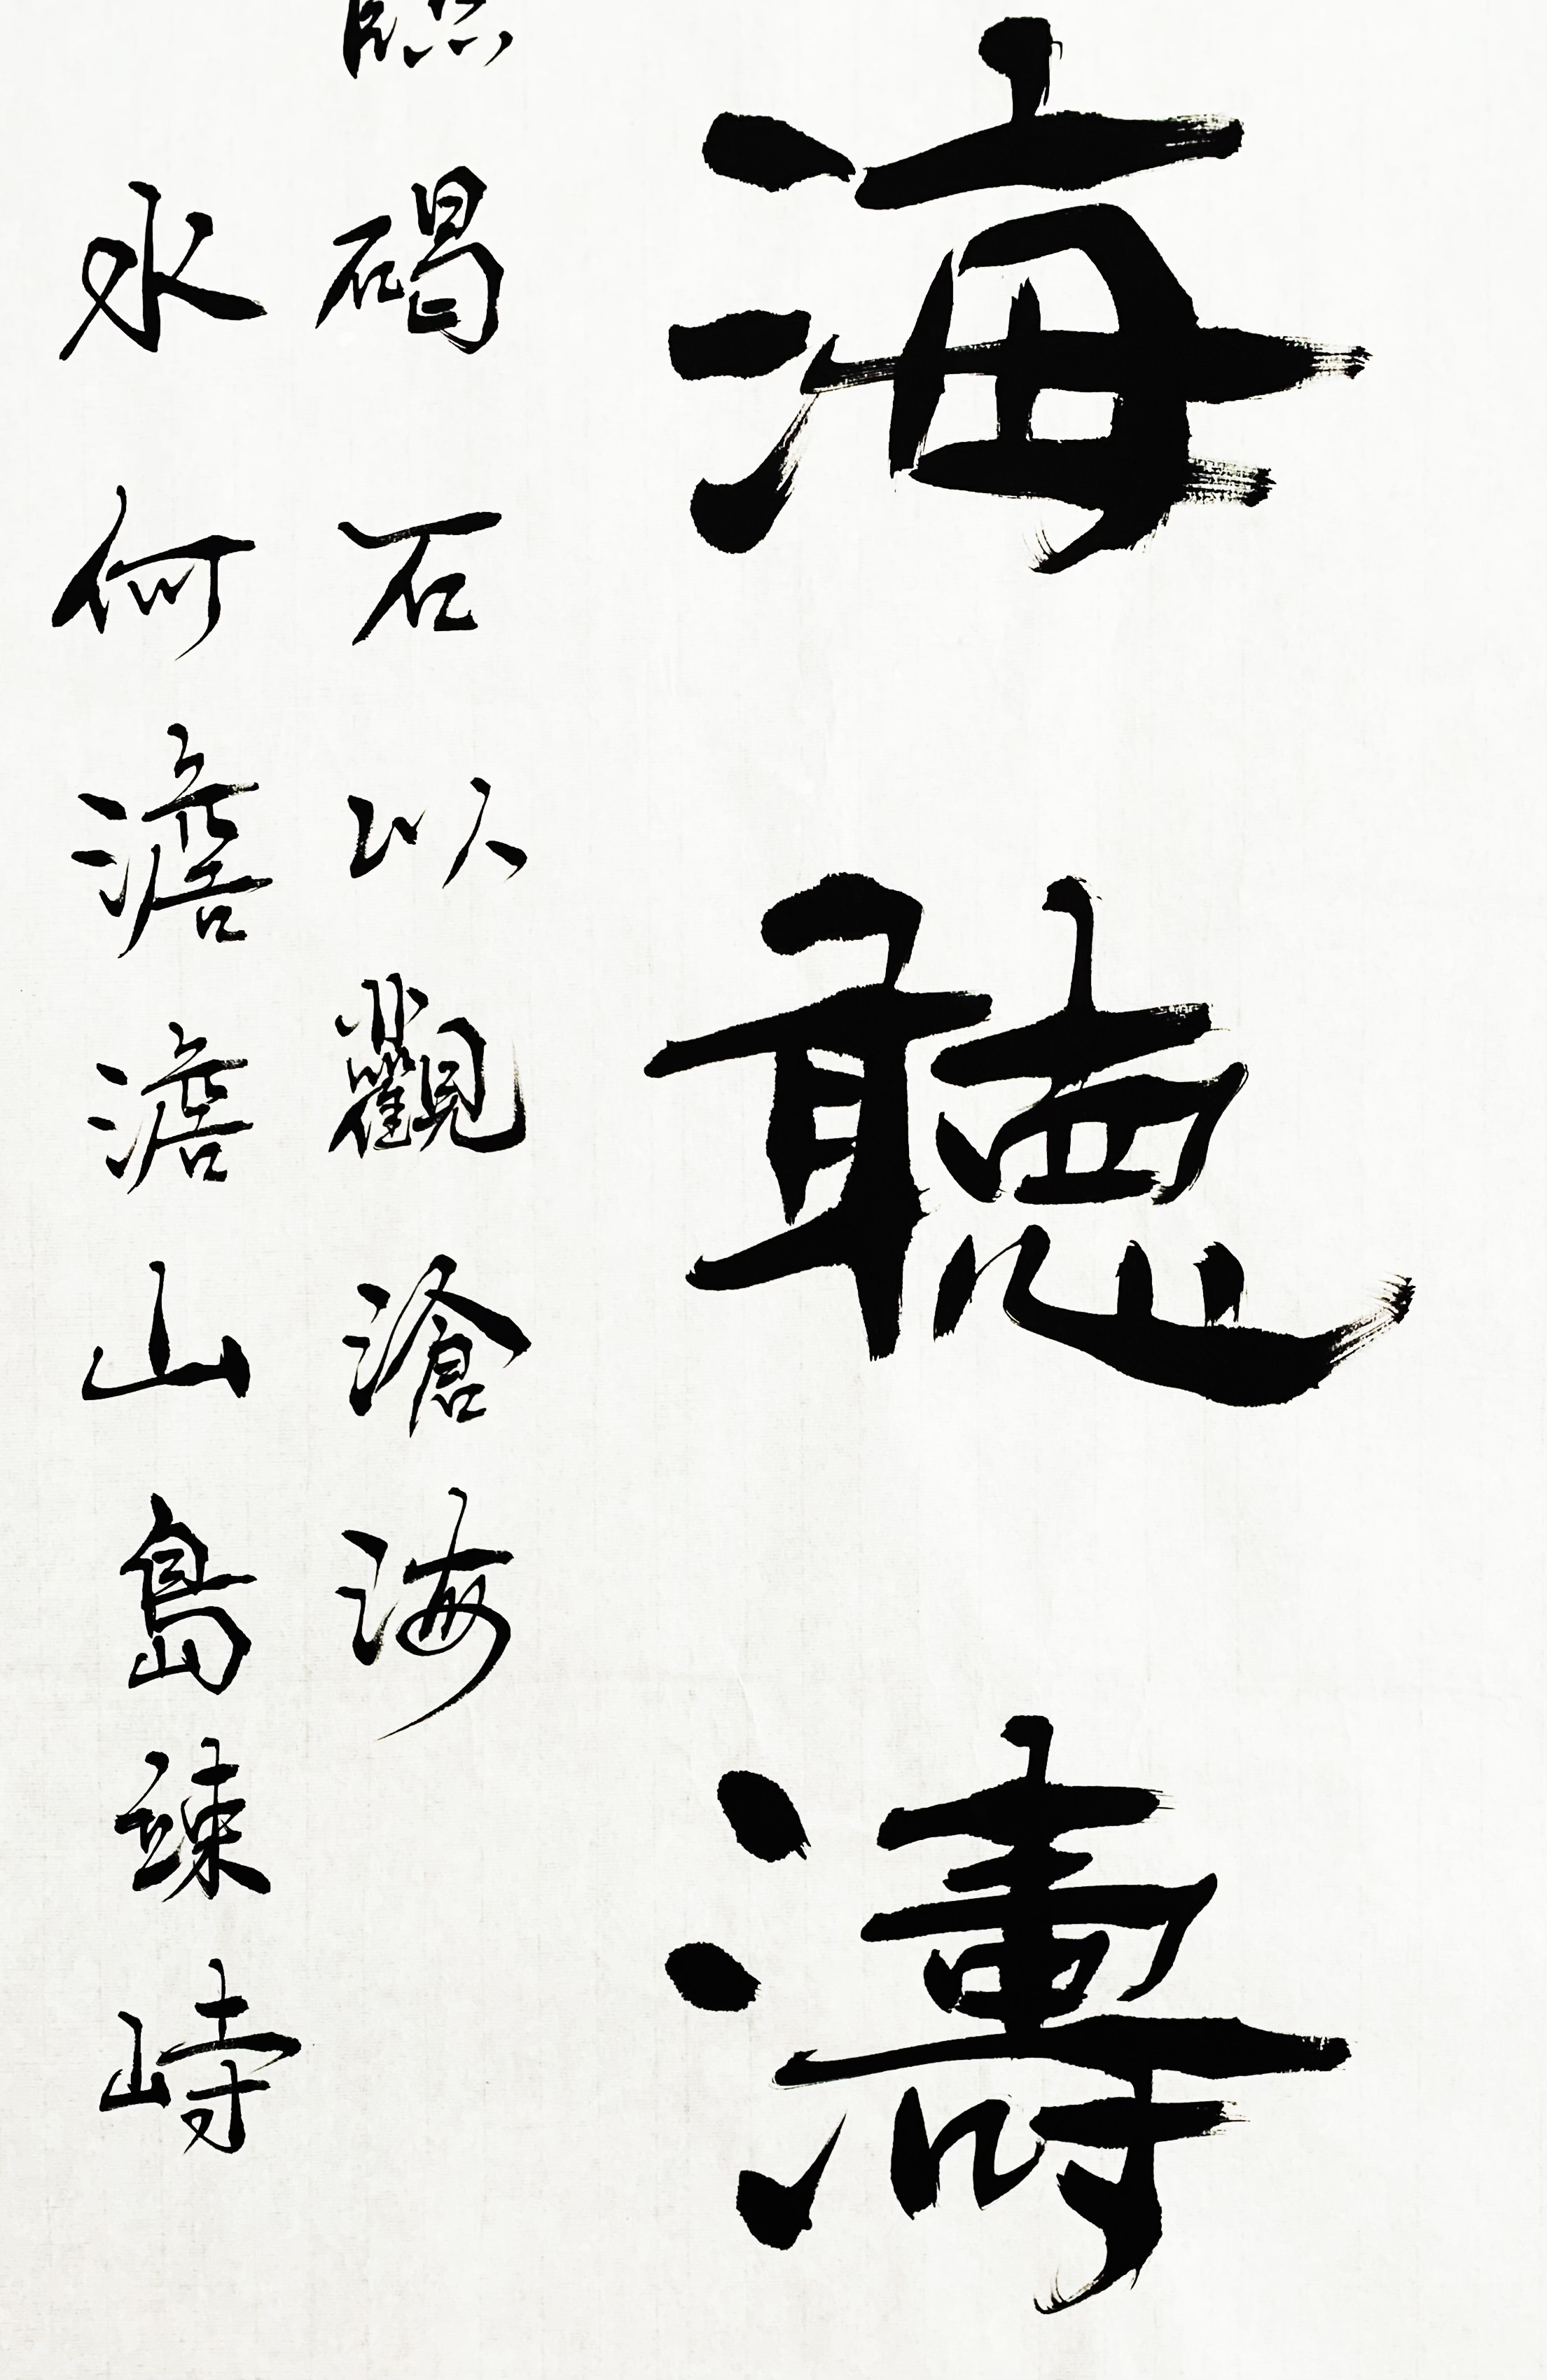 海聽濤
碣石以觀滄海
水何澹澹山島竦峙